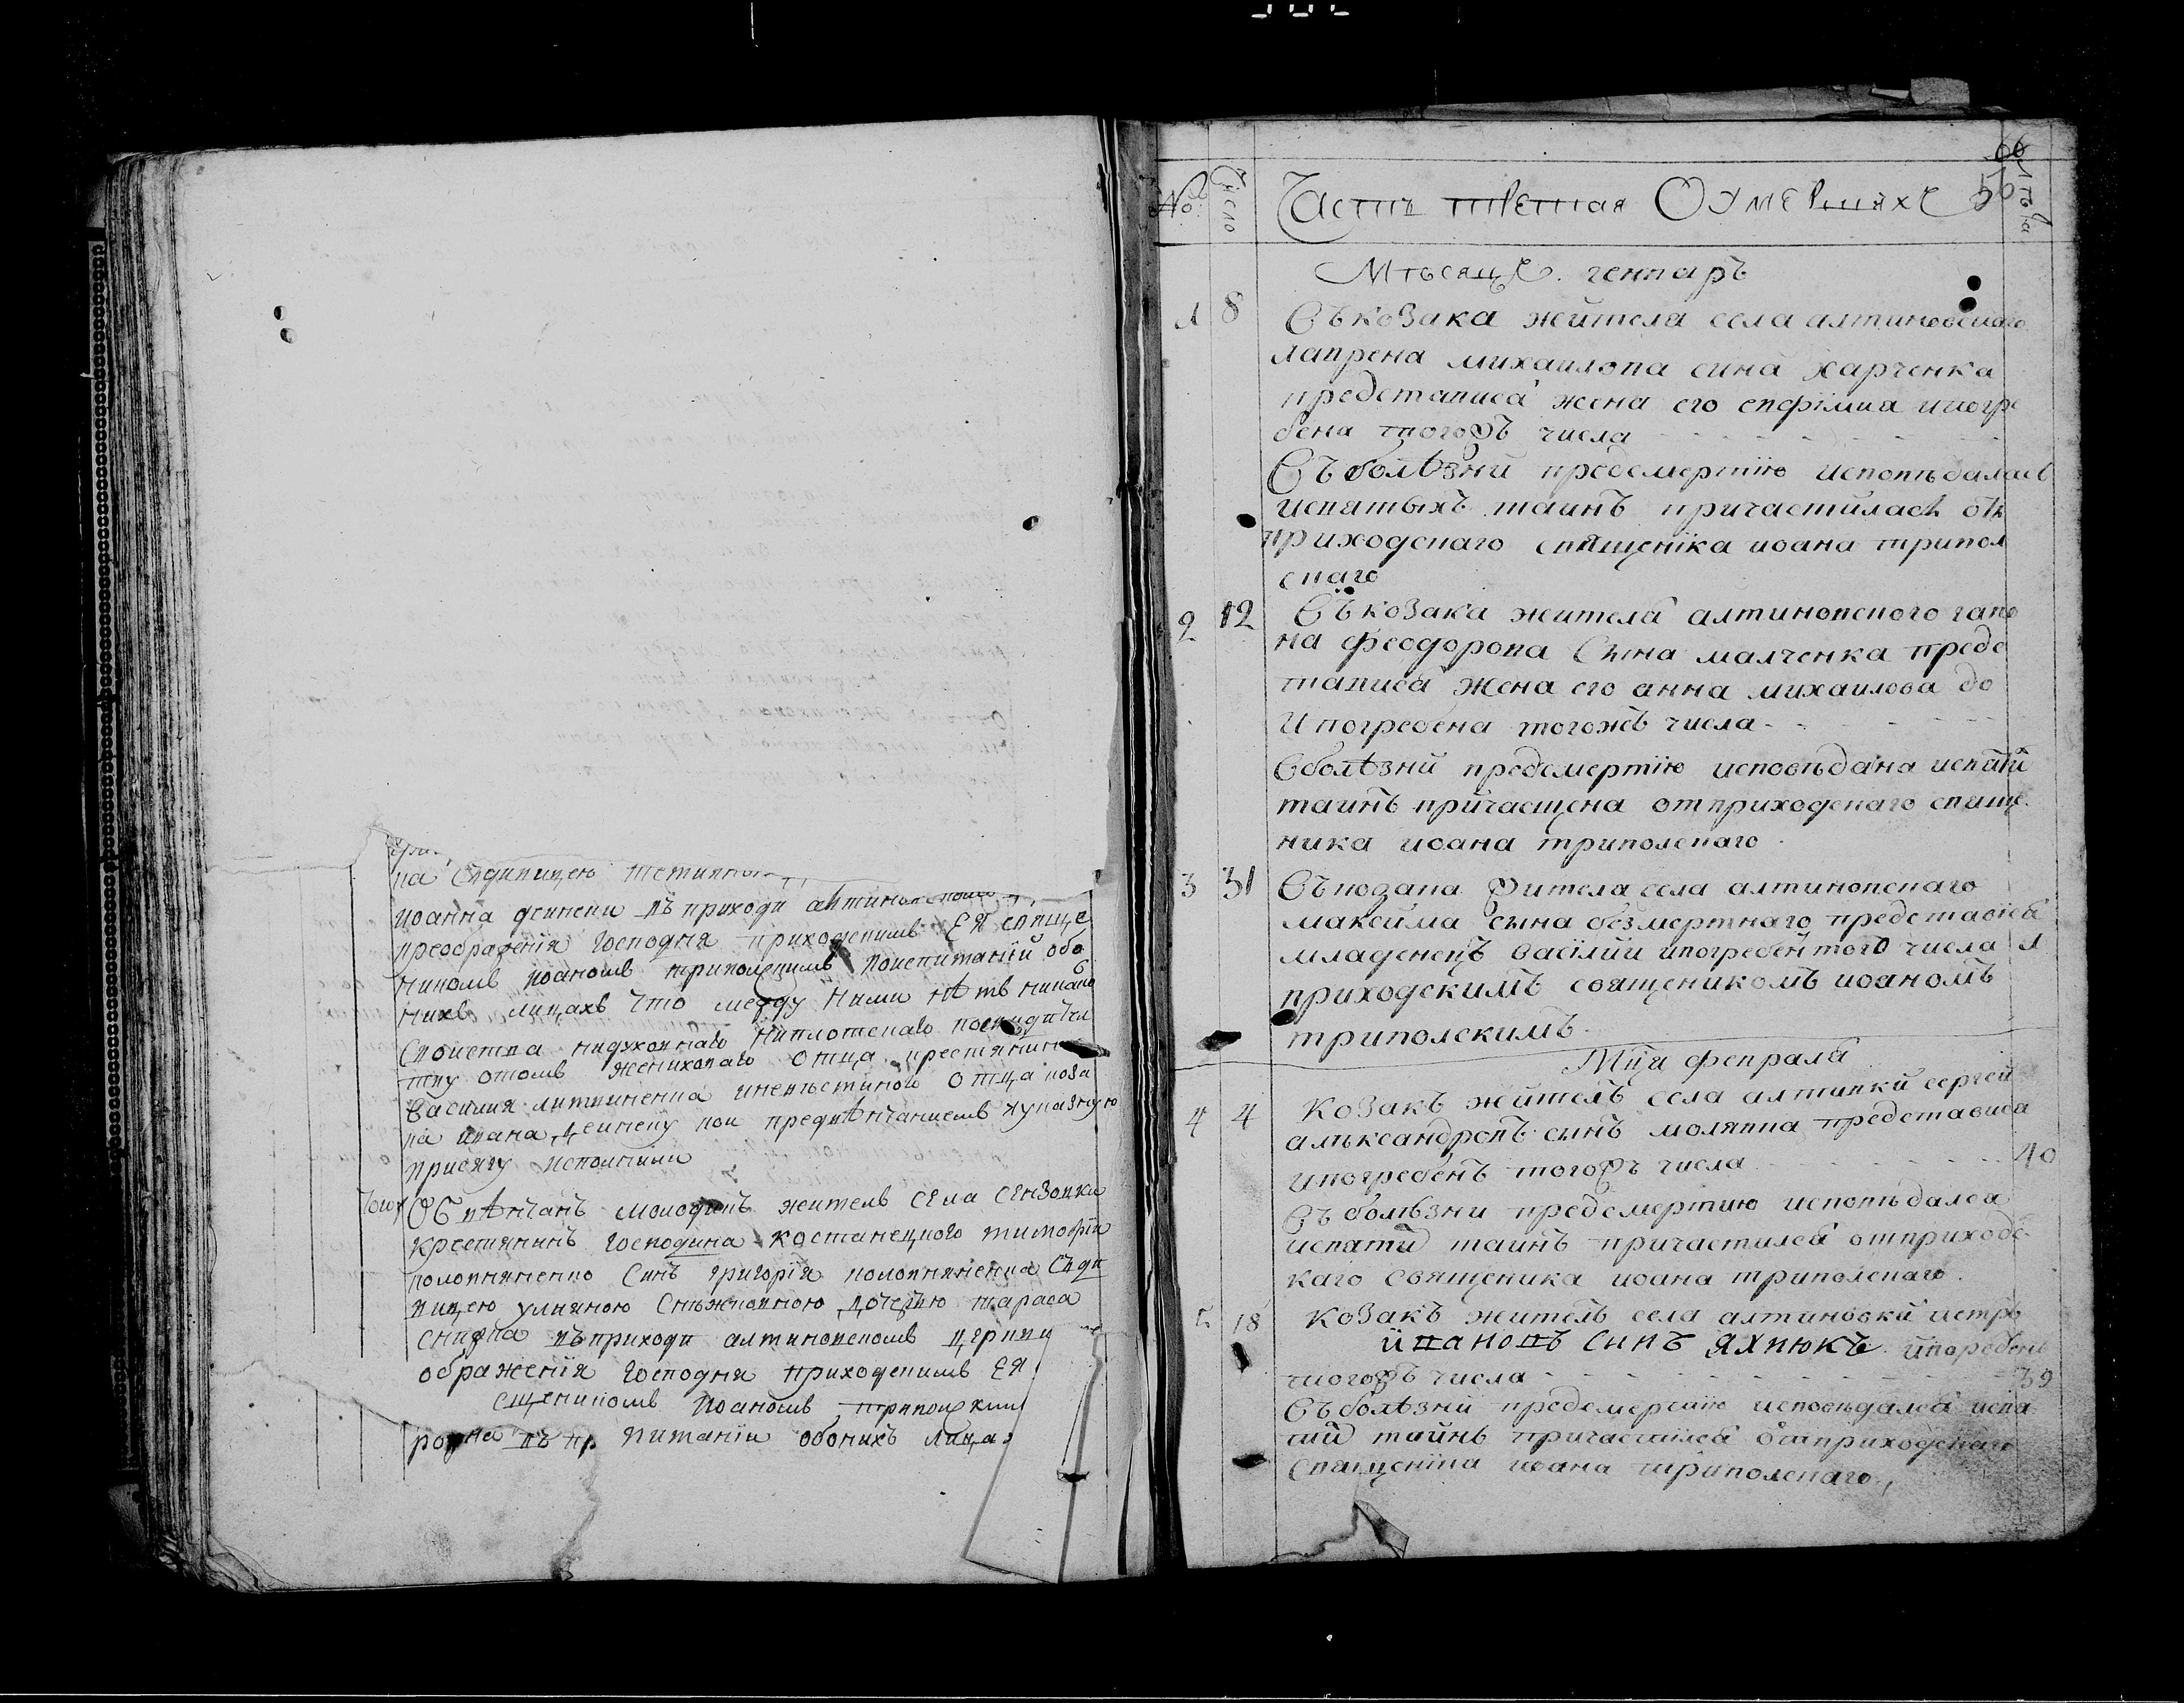 на единицею
Иоанна деинеки въ приходи алтиновской
преображенія Господня приходскимъ Ея свяще
никомъ Иоаномъ триполскимъ поиспитаніи обо
нихъ лицахъ что между ними нѣтъ никако
своиства нидуховнаго ниплотскаго
тву отомъ жениховаго отца крестянин
Василия литвиненка иневъстиного отца коза
ка ивана деинеку кои предвѣнчаниемъ куказную
присягу исполнили
Обвѣнчанъ молодикъ житель села Сензовки
крестянинъ господина костенецкого тимофіи
половняненко Синъ григорія половняненка Съди
вицею улияною Снѣжковною дочерю тараса
снѣжка въприходи алтиновскомъ церкви
ображенія Господня приходскимъ Ея
сщеникомъ Иоаномъ триполским
питаніи обоихъ лица
66
50
№ Число Часть третая Оумершихъ Лѣта
Мѣсяцъ геннаръ
1 8 Съ козака жителя села алтиновскаго
лаврена михаилова сина харченка
представися жена его евфімия ипогре
бена тогожъ числа
Съ болѣзни предсмертію исповѣдалась
исвятыхъ таинъ причастилась отъ
приходскаго священіка иоана трипол
скаго
2 12 Съ козака жителя алтиновского гапо
на феодорова Сына малченка предс
тависа жена его анна михаилова до
И погребена тогожъ числа
Сболѣзни предсмертію исповѣдана исвятіи
таинъ причащена отприходскаго свяще
ника иоана триполскаго
3 31 Съ козака жителя села алтиновскаго
максима сына безмертнаго представися
младенецъ василии ипогребен того числа 1
приходскимъ священикомъ иоаномъ
триполскимъ
Мца феврала
4 4 Козакъ житель села алтинвки сергеи
альександровъ сынъ молявка представися
ипогребенъ тогожъ числа 40
Съ болѣзни предсмертию исповѣдался
исвяти таинъ причастился отприходс
каго священика иоана триполскаго
5 18 Козакъ житель села алтиновки петръ
ивановъ синъ яхнюкъ ипогребенъ
тогожъ числа 39
Съ болѣзни предсмертию исповѣдался исвя
тіи таинъ причастился отприходскаго
Священіка иоана триполскаго